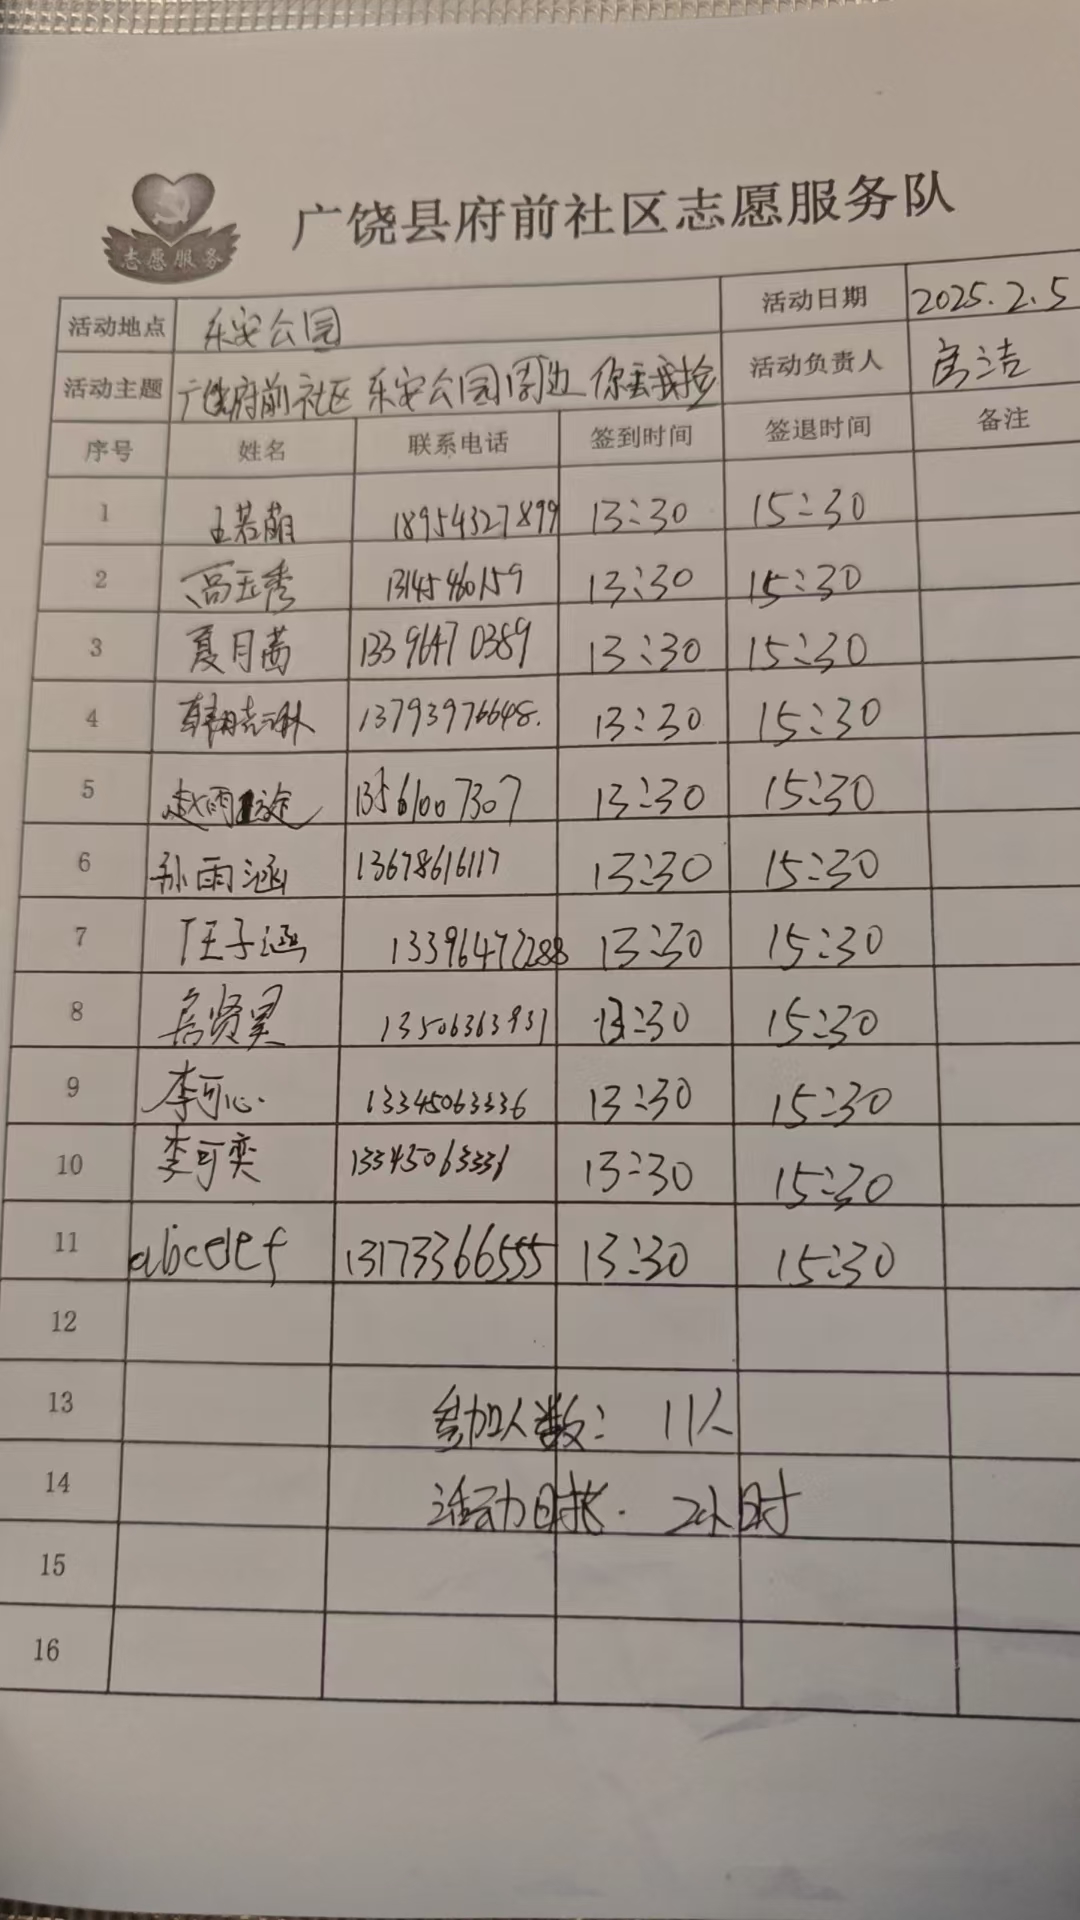 志愿服务
广饶县府前社区志愿服务队
活动地点 乐安公园 活动日期 2025.2.5
活动主题 广饶府前社区 乐安公园周边 你丢我捡 活动负责人 房洁
序号 姓名 联系电话 签到时间 签退时间 备注
1 王若萌 18954327899 13:30 15:30
2 高玉秀 13145460159 13:30 15:30
3 夏月茜 13396470389 13:30 15:30
4 13793976648. 13:30 15:30
5 赵雨 13561007307 13:30 15:30
6 孙雨涵 13678616117 13:30 15:30
7 任子涵 13396472288 13:30 15:30
8 13506363931 13:30 15:30
9 李可心. 13345063336 13:30 15:30
10 李可奕 13345063336 13:30 15:30
11 abcdef 13173366555 13:30 15:30
12
13 参加人数: 11人
14 活动时长. 2小时
15
16